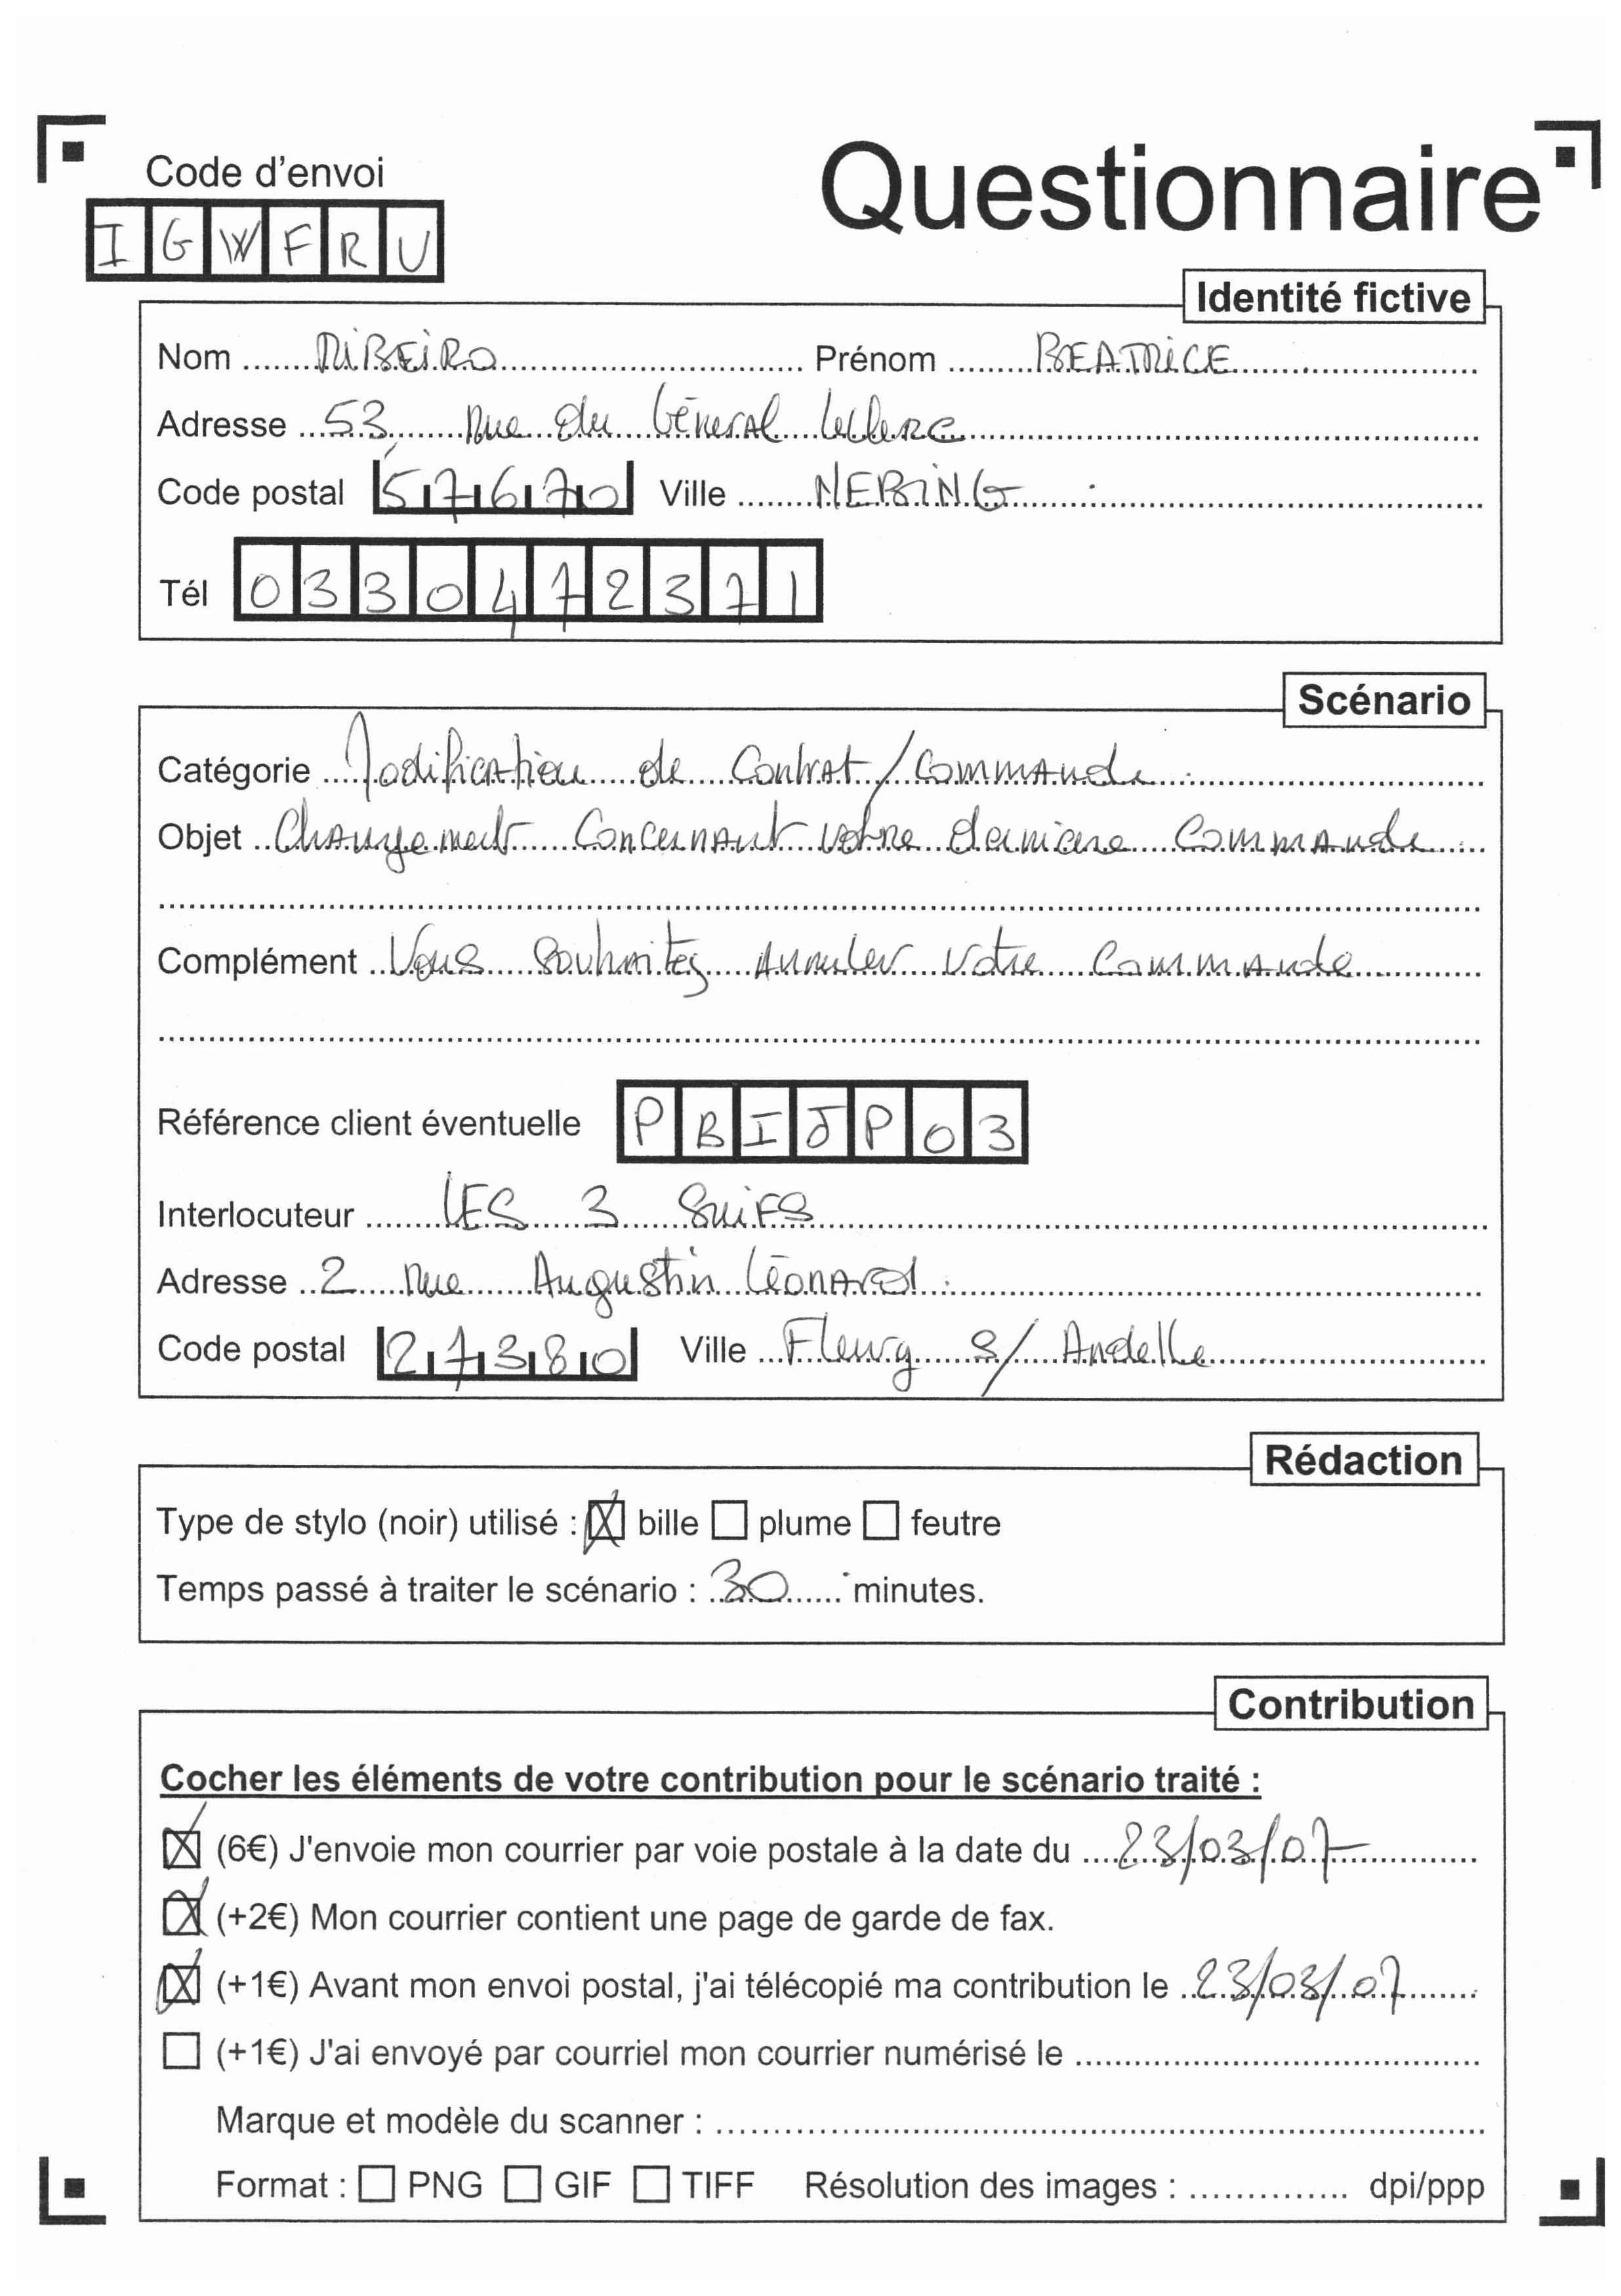 Questionnaire
Code d'envoi
IGWFRU
Identité fictive
Nom RiBEiRO Prénom BEATRiCE
Adresse 53, Rue du Général Leclerc
Code postal 57670 Ville NEBiNG
Tél 0330472371
Scénario
Catégorie Modification de Contrat/Commande
Objet Changement Concernant votre derniere Commande
Complément Vous Souhaitez Annuler votre Commande
Référence client éventuelle PBIJP03
Interlocuteur LES 3 SuiFS
Adresse 2 Rue Augustin Léonard
Code postal 27380 Ville Fleury S/ Andelle
Rédaction
Type de stylo (noir) utilisé : ☒ bille ☐ plume ☐ feutre
Temps passé à traiter le scénario : 30 minutes.
Contribution
Cocher les éléments de votre contribution pour le scénario traité :
☒ (6€) J'envoie mon courrier par voie postale à la date du 23/03/07
☒ (+2€) Mon courrier contient une page de garde de fax.
☒ (+1€) Avant mon envoi postal, j'ai télécopié ma contribution le 23/03/07
☐ (+1€) J'ai envoyé par courriel mon courrier numérisé le
Marque et modèle du scanner :
Format : ☐ PNG ☐ GIF ☐ TIFF Résolution des images : dpi/ppp